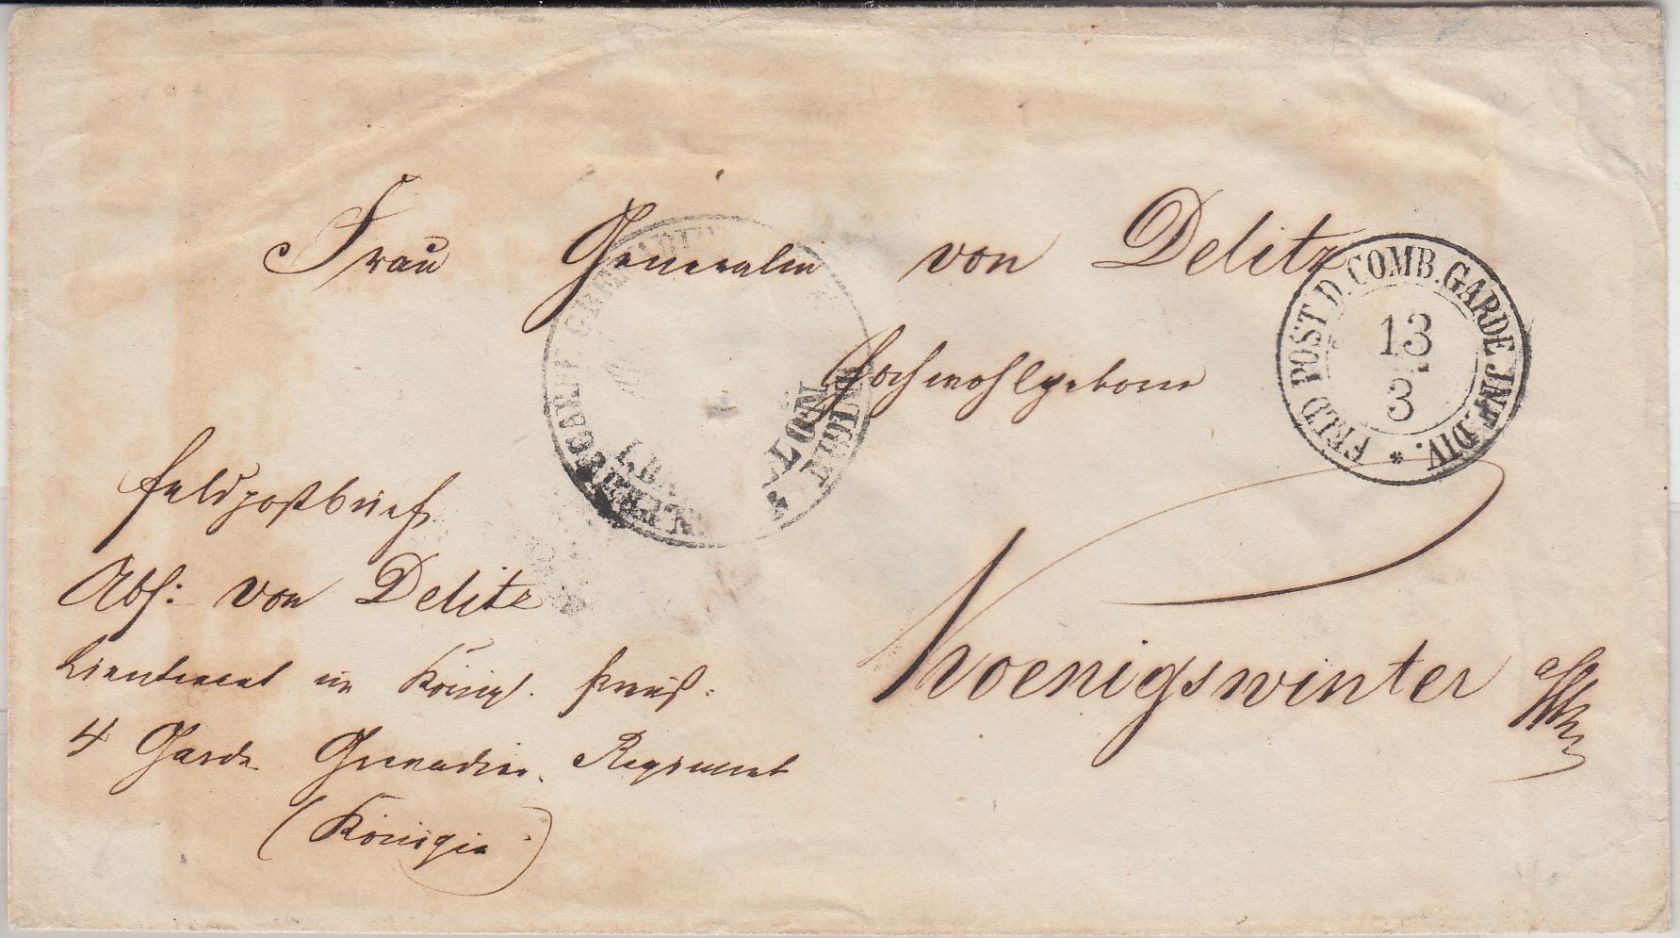 Frau Generalin von Delitz
Hochwohlgeboren
FELD POST D. COMB. GARDE INF. DIV. *
13
3
Feldpostbrief
Abs: von Delitz
Lieutenant im Königl. Preuß:
4 Garde Grenadier Regiment
(Königin)
Koenigswinter a/Rhn